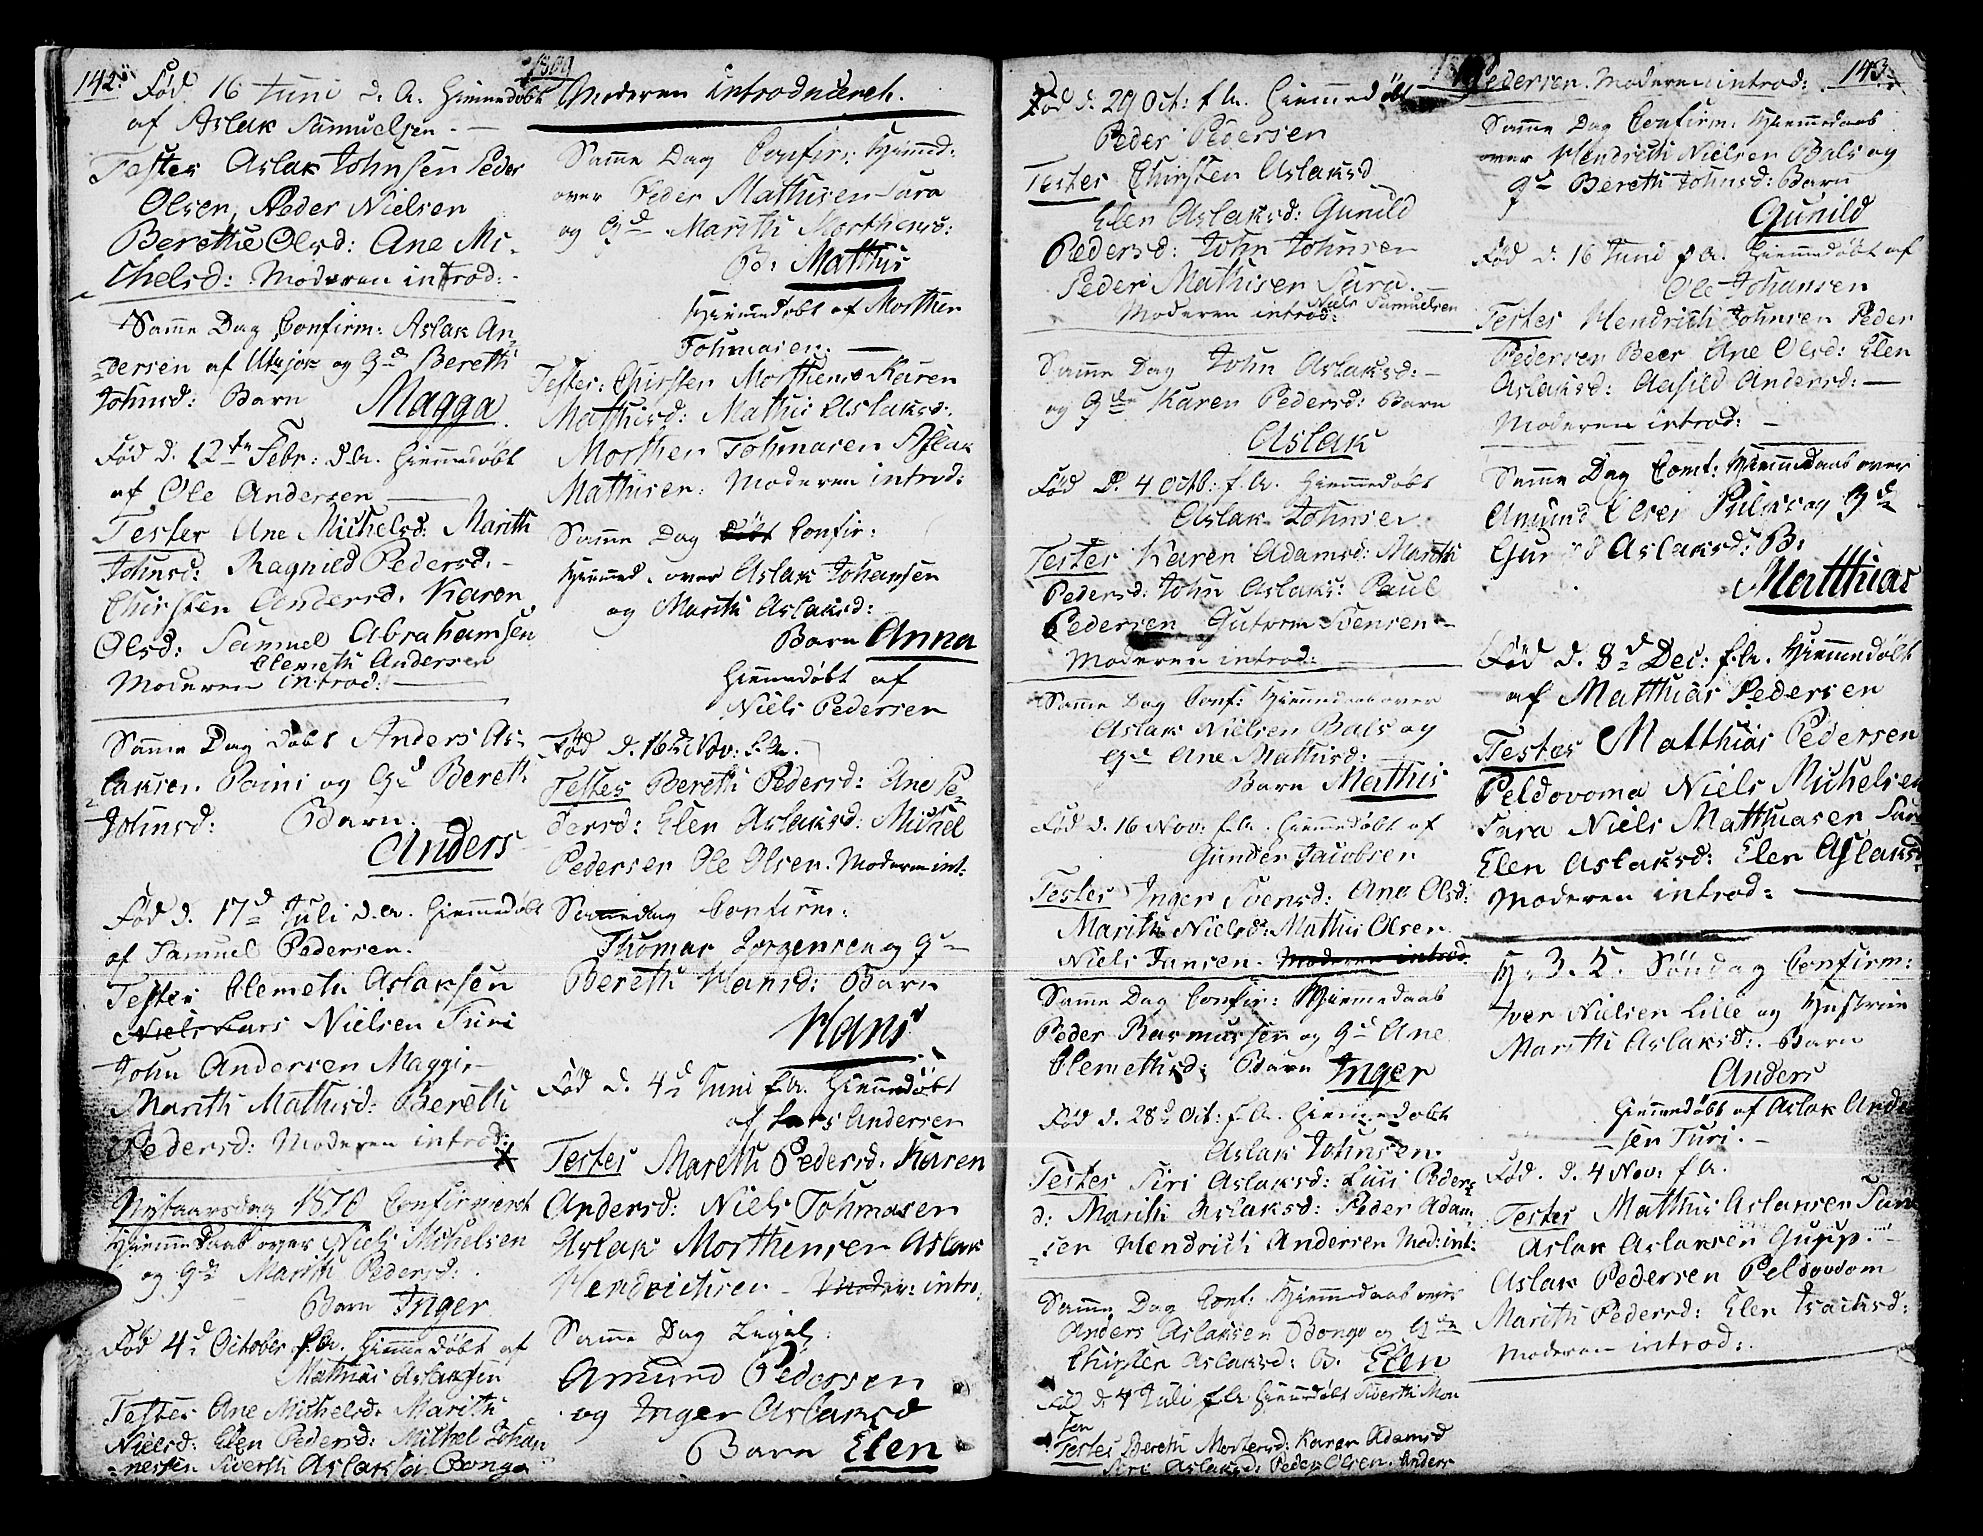 142.
Fød 16 Juni d. A. Hiemmedøbt
af Aslak Samuelsen. —
Testes Aslak Johnsen Peder
Olsen, Peder Nielsen
Berethe Olsd: Ane Mi-
chelsd: Moderen introd:
Samme Dag Confirm: Aslak An-
dersen af Utsjok og Qd Bereth
Johnsd: Barn Magga
Fød d. 12te Febr: d. A. Hiemmedøbt
af Ole Andersen
Testes Ane Michelsd: Marith
Johnsd: Ragnild Pedersd. -
Chirsten Andersd. Karen
Olsd: Samuel Abrahamsen
Clemeth Andersen
Moderen introd: —
Samme Dag døbt Anders As-
laksen Poini og Qd Bereth
Johnsd: Barn.
Anders
Fød d. 17d Juli d. A. Hiemmedøbt
af Samuel Pedersen.
Testes Clemeth Aslaksen
Niels Lars Nielsen Turi
John Andersen Maggi
Marith Mathisd: Bereth
Pedersd: Moderen introd:
Nytaarsdag 1810 Confirmeret
Hiemmedaab over Niels Michelsen
og Qd Marith Pedersd:
Barn Inger
Fød 4d October f. A. Hiemmedøbt af
Mathias Aslaksen
Testes Ane Michelsd. Marith
Nielsd: Elen Pedersd: Michel Johan
nesen Siverth Aslaksen Bongo
Moderen introduceret.
Samme Dag Confir: Hiemmed:
over Peder Mathisen
og Qd Marith Morthensd:
B: Matthis
Hiemmedøbt af Morthen
Tohmasen. —
Testes: Chirsten Morthensd Karen
Mathisd: Mathis Aslaksd.
Morthen Tohmasen Aslak
Mathisen: Moderen introd:
Samme Dag døbt Confir:
Hiemmed. over Aslak Johansen
og Marith Aslaksd:
Barn Anna
Hiemmedøbt af
Niels Pedersen
Fød d. 16d Nov. f. A.
Testes Bereth Pedersd: Ane Pe-
dersd: Elen Aslaksd: Michel
Pedersen Ole Olsen. Moderen int:
Samme dag Confirm:
Thomas Jorgensen og Qd
Bereth Hansd: Barn
Hans
Fød d. 4d Juni f. A. Hiemmedøbt
af Lars Andersen
Testes Mareth Pedersd. Karen
Andersd: Niels Tohmasen
Aslak Morthensen Aslak
Hendrichsen - Moder: intro:
Samme Dag Ligel:
Amund Pedersen
og Inger Aslaksd
Barn Elen
143.
Fød d. 29 Oct: f. A. Hiemmedøbt
Peder Pedersen
Testes Chirsten Aslaksd
Elen Aslaksd: Gunild
Pedersd: John Johnsen
Peder Mathisen Sara. —
Niels Samuelsen
Moderen introd:
Samme Dag John Aslaksd: -
og Qde Karen Pedersd: Barn
Aslak
Fød d. 4 Octb: f. A. Hiemmedøbt
Aslak Johnsen
Testes Karen Adamsd: Marith
Pedersd: John Aslaks: Paul
Pedersen Gutorm Svensen -
Moderen introd:
Samme Dag Conf: Hiemmedaab over
Aslak Nielsen Bals og
Qd Ane Mathisd:
Barn Mathis
Fød d. 16 Nov: f. A. Hiemmedøbt af
Gunder Jacobsen
Testes Inger Svensd: Ane Olsd:
Marith Nielsd: Mathis Olsen
Niels Jansen. Moderen introd.
Samme Dag Confir: Hiemmedaab
Peder Rasmussen og Qd Ane
Clemethsd: Barn Inger
Fød d. 28d Oct: f. A. Hiemmedøbt
Aslak Johnsen.
Testes Siri Aslaksd: Siri Peders-
d: Marith Aslaksd: Peder Adam-
sen Hendrich Andersen Mod: int:
Samme Dag Conf: Hiemmedaab over
Anders Aslaksen Bongo og Qde
Chirsten Aslaksd: B. Elen
Fød d. 4 Juli f. A. Hiemmedøbt Siverth Mon
sen
Testes Bereth Mortensd: Karen Adamsd
Siri Aslaksd: Peder Olsen. Anders
Pedersen. Moderen introd:
Samme Dag Confirm: Hiemmedaab
over Hendrich Nielsen Bals og
Qd Bereth Johnsd: Barn
Gunild
Fød d. 16 Juni f. A. Hiemmedøbt af
Ole Johansen
Testes Hendrich Johnsen Peder
Pedersen Beer Ane Olsd: Elen
Aslaksd: Aashild Andersd: —
Moderen introd: -
Samme Dag Conf: Hiemmedaab over
Amund Olsen og Qd
Aslaksd: B:
Matthias
Fød d. 8d Dec: f. A. Hiemmedøbt
af Matthias Pedersen
Testes Matthias Pedersen
Peldovoma Niels Michelsen
Sara Niels Matthiasen Sara
Elen Aslaksd: Elen Aslaksd
Moderen introd: —
H. 3. K. Søndag Confirm:
Iver Nielsen Lille og Hustrue
Marith Aslaksd: Barn
Anders
Hiemmedøbt af Aslak Ander
sen Turi. -
Fød. d. 4 Nov: f. A.
Testes Matthis Aslaksen Sara
Aslak Aslaksen Gupp. -
Aslak Pedersen Peldovom
Marith Pedersd: Elen Isachsd:
Moderen introd:.